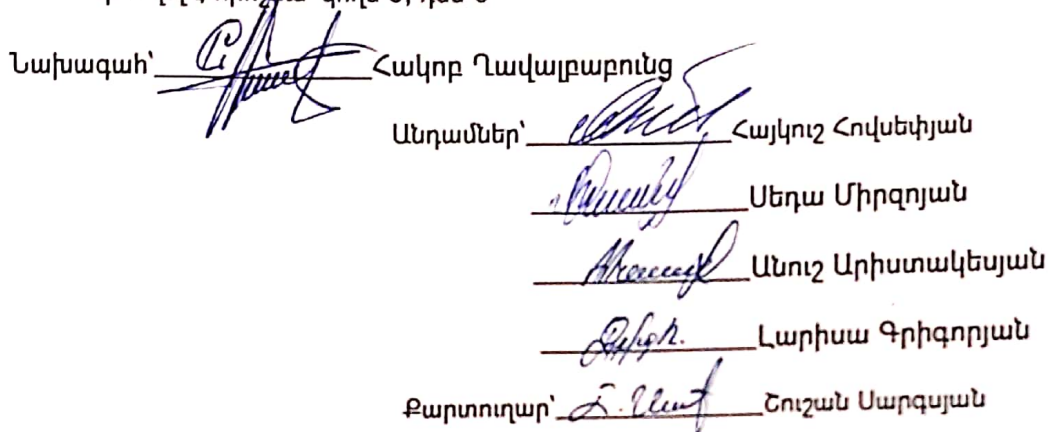 Նախագահ՝ Հակոբ Ղավալբաբունց
Անդամներ՝ Հայկուշ Հովսեփյան
Սեդա Միրզոյան
Անուշ Արիստակեսյան
Լարիսա Գրիգորյան
Քարտուղար՝ Շուշան Սարգսյան